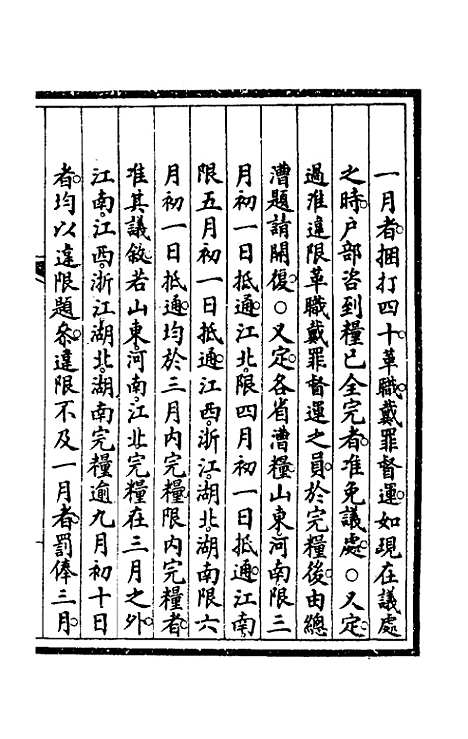 一月者捆打四十革職戴罪督運如現在議處
之時户部咨到糧已全完者准免議處○又定
過淮違限革職戴罪督運之員於完糧後由總
漕題請開復○又定各省漕糧山東河南限三
月初一日抵通江北限四月初一日抵通江南
限五月初一日抵通江西浙江湖北湖南限六
月初一日抵通均於三月内完糧限内完糧者
准其議敘若山東河南江北完糧在三月之外
江南江西浙江湖北湖南完糧逾九月初十日
者均以違限題參違限不及一月者罰俸三月